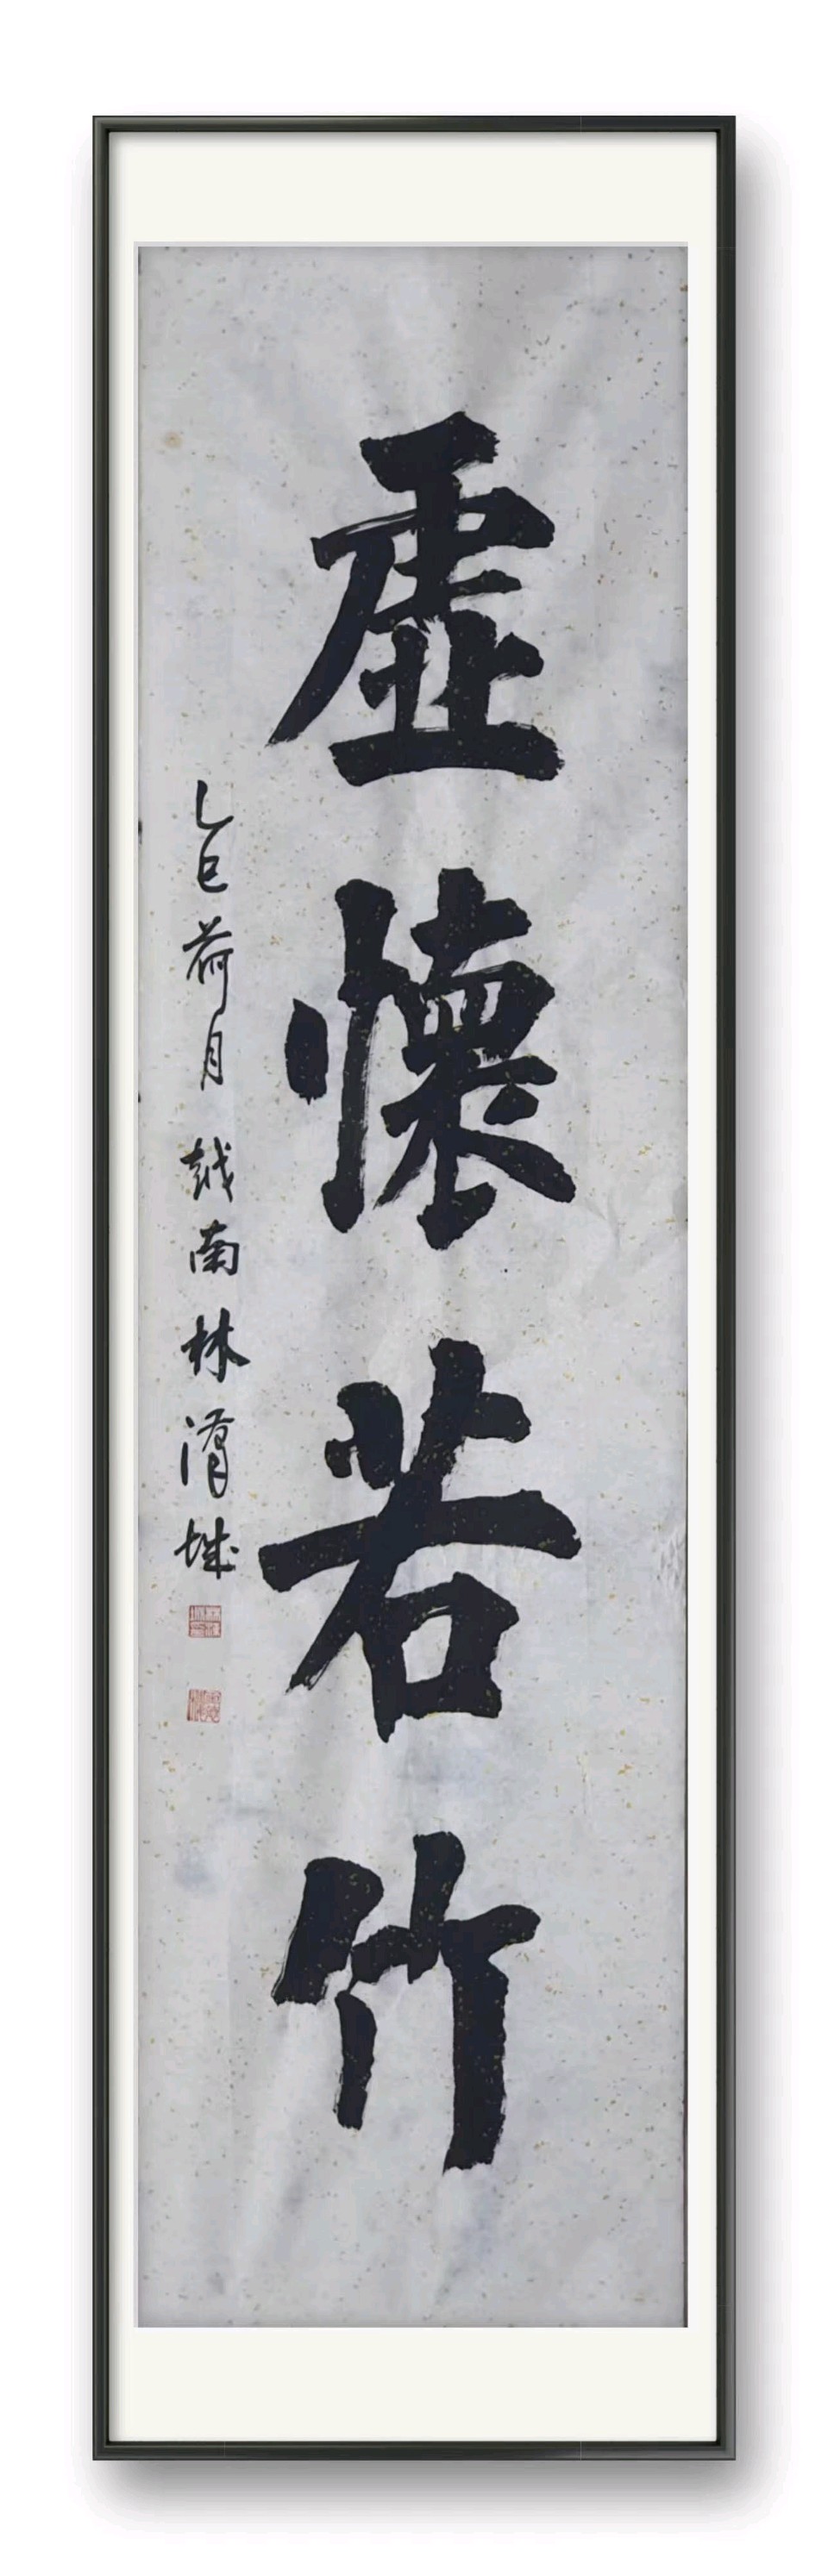 虛懷若竹
乙巳荷月 越南林清城